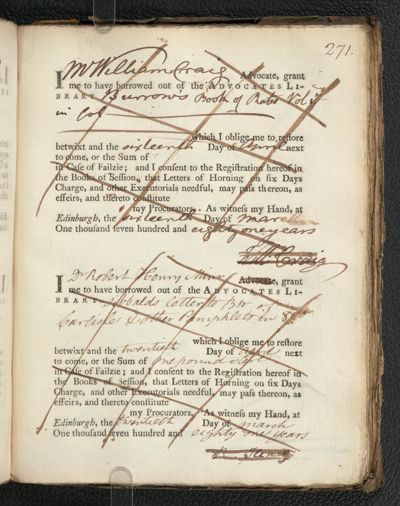 271.
I Mr William Craig Advocate, grant
me to have borrowed out of the ADVOCATES LI-
BRARY Burrows Book of Rates Vol
in
which I oblige me to reſtore
betwixt and the sixteenth Day of Aprile next
to come, or the Sum of
in Caſe of Failzie; and I conſent to the Regiſtration hereof in
the Books of Seſſion, that Letters of Horning on ſix Days
Charge, and other Executorials needful, may paſs thereon, as
effeirs, and thereto conſtitute
my Procurators. As witneſs my Hand, at
Edinburgh, the sixteenth Day of March
One thouſand ſeven hundred and eighty one years
Will Craig
I Dr Robert Henry Minr Advocate, grant
me to have borrowed out of the ADVOCATES LI-
BRARY Letter to Bp of
Carlisle & other Pamphlets in
which I oblige me to reſtore
betwixt and the twentieth Day of Aprile next
to come, or the Sum of one pound
in Caſe of Failzie; and I conſent to the Regiſtration hereof in
the Books of Seſſion, that Letters of Horning on ſix Days
Charge, and other Executorials needful, may paſs thereon, as
effeirs, and thereto conſtitute
my Procurators. As witneſs my Hand, at
Edinburgh, the twentieth Day of march
One thouſand ſeven hundred and eighty one years
Henry